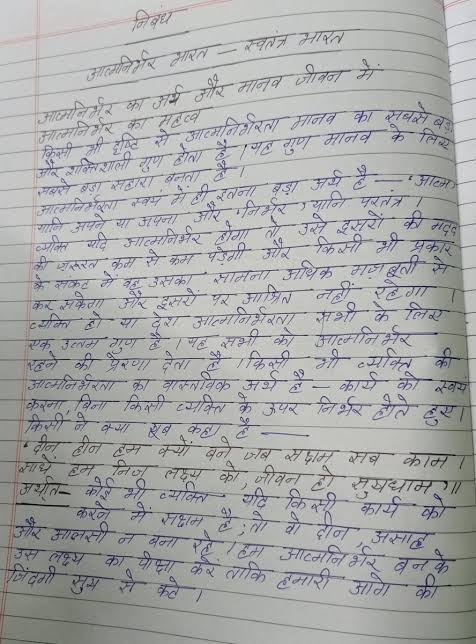 निबंध
आत्मनिर्भर भारत – स्वतंत्र भारत
आत्मनिर्भर का अर्थ और मानव जीवन में
आत्मनिर्भर का महत्व
किसी भी दृष्टि से आत्मनिर्भरता मानव का सबसे बड़ा
और शक्तिशाली गुण होता है। यह गुण मानव के लिए
सबसे बड़ा सहारा बनता है।
आत्मनिर्भरता स्वयं में ही इतना बड़ा अर्थ है – 'आत्म'
यानि अपने या अपना और 'निर्भर' यानि परतंत्र।
व्यक्ति यदि आत्मनिर्भर होगा तो उसे दूसरों की मदद
की ज़रूरत कम से कम पड़ेगी और किसी भी प्रकार
के संकट में वह उसका सामना अधिक मजबूती से
कर सकेगा और दूसरों पर आश्रित नहीं रहेगा।
व्यक्ति हो या देश आत्मनिर्भरता सभी के लिए
एक उत्तम गुण है। यह सभी को आत्मनिर्भर
रहने की प्रेरणा देता है। किसी भी व्यक्ति की
आत्मनिर्भरता का वास्तविक अर्थ है – कार्य को स्वयं
करना, बिना किसी व्यक्ति के ऊपर निर्भर होते हुए।
किसी ने क्या खूब कहा है —
'दीन हीन हम क्यों बने, जब सक्षम सब काम।
साधे हम निज लक्ष्य को, जीवन हो सुखधाम॥
अर्थात– कोई भी व्यक्ति यदि किसी कार्य को
करने में सक्षम है; तो वो दीन, असहाय
और आलसी न बना रहे। हम आत्मनिर्भर बन के
उस लक्ष्य का पीछा करें ताकि हमारी आगे की
जिंदगी सुख से कटे।